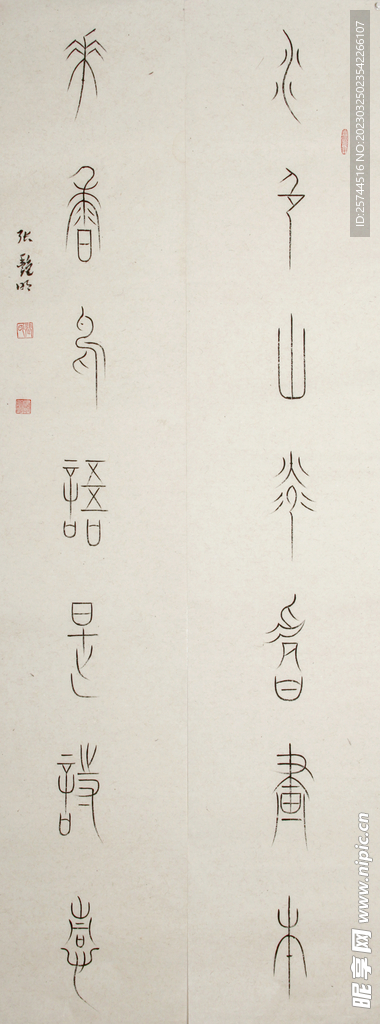 水色山光皆畫本
花香鳥語是詩
ID:25744516 NO:20230325023542266107
昵享网 www.nipic.cn